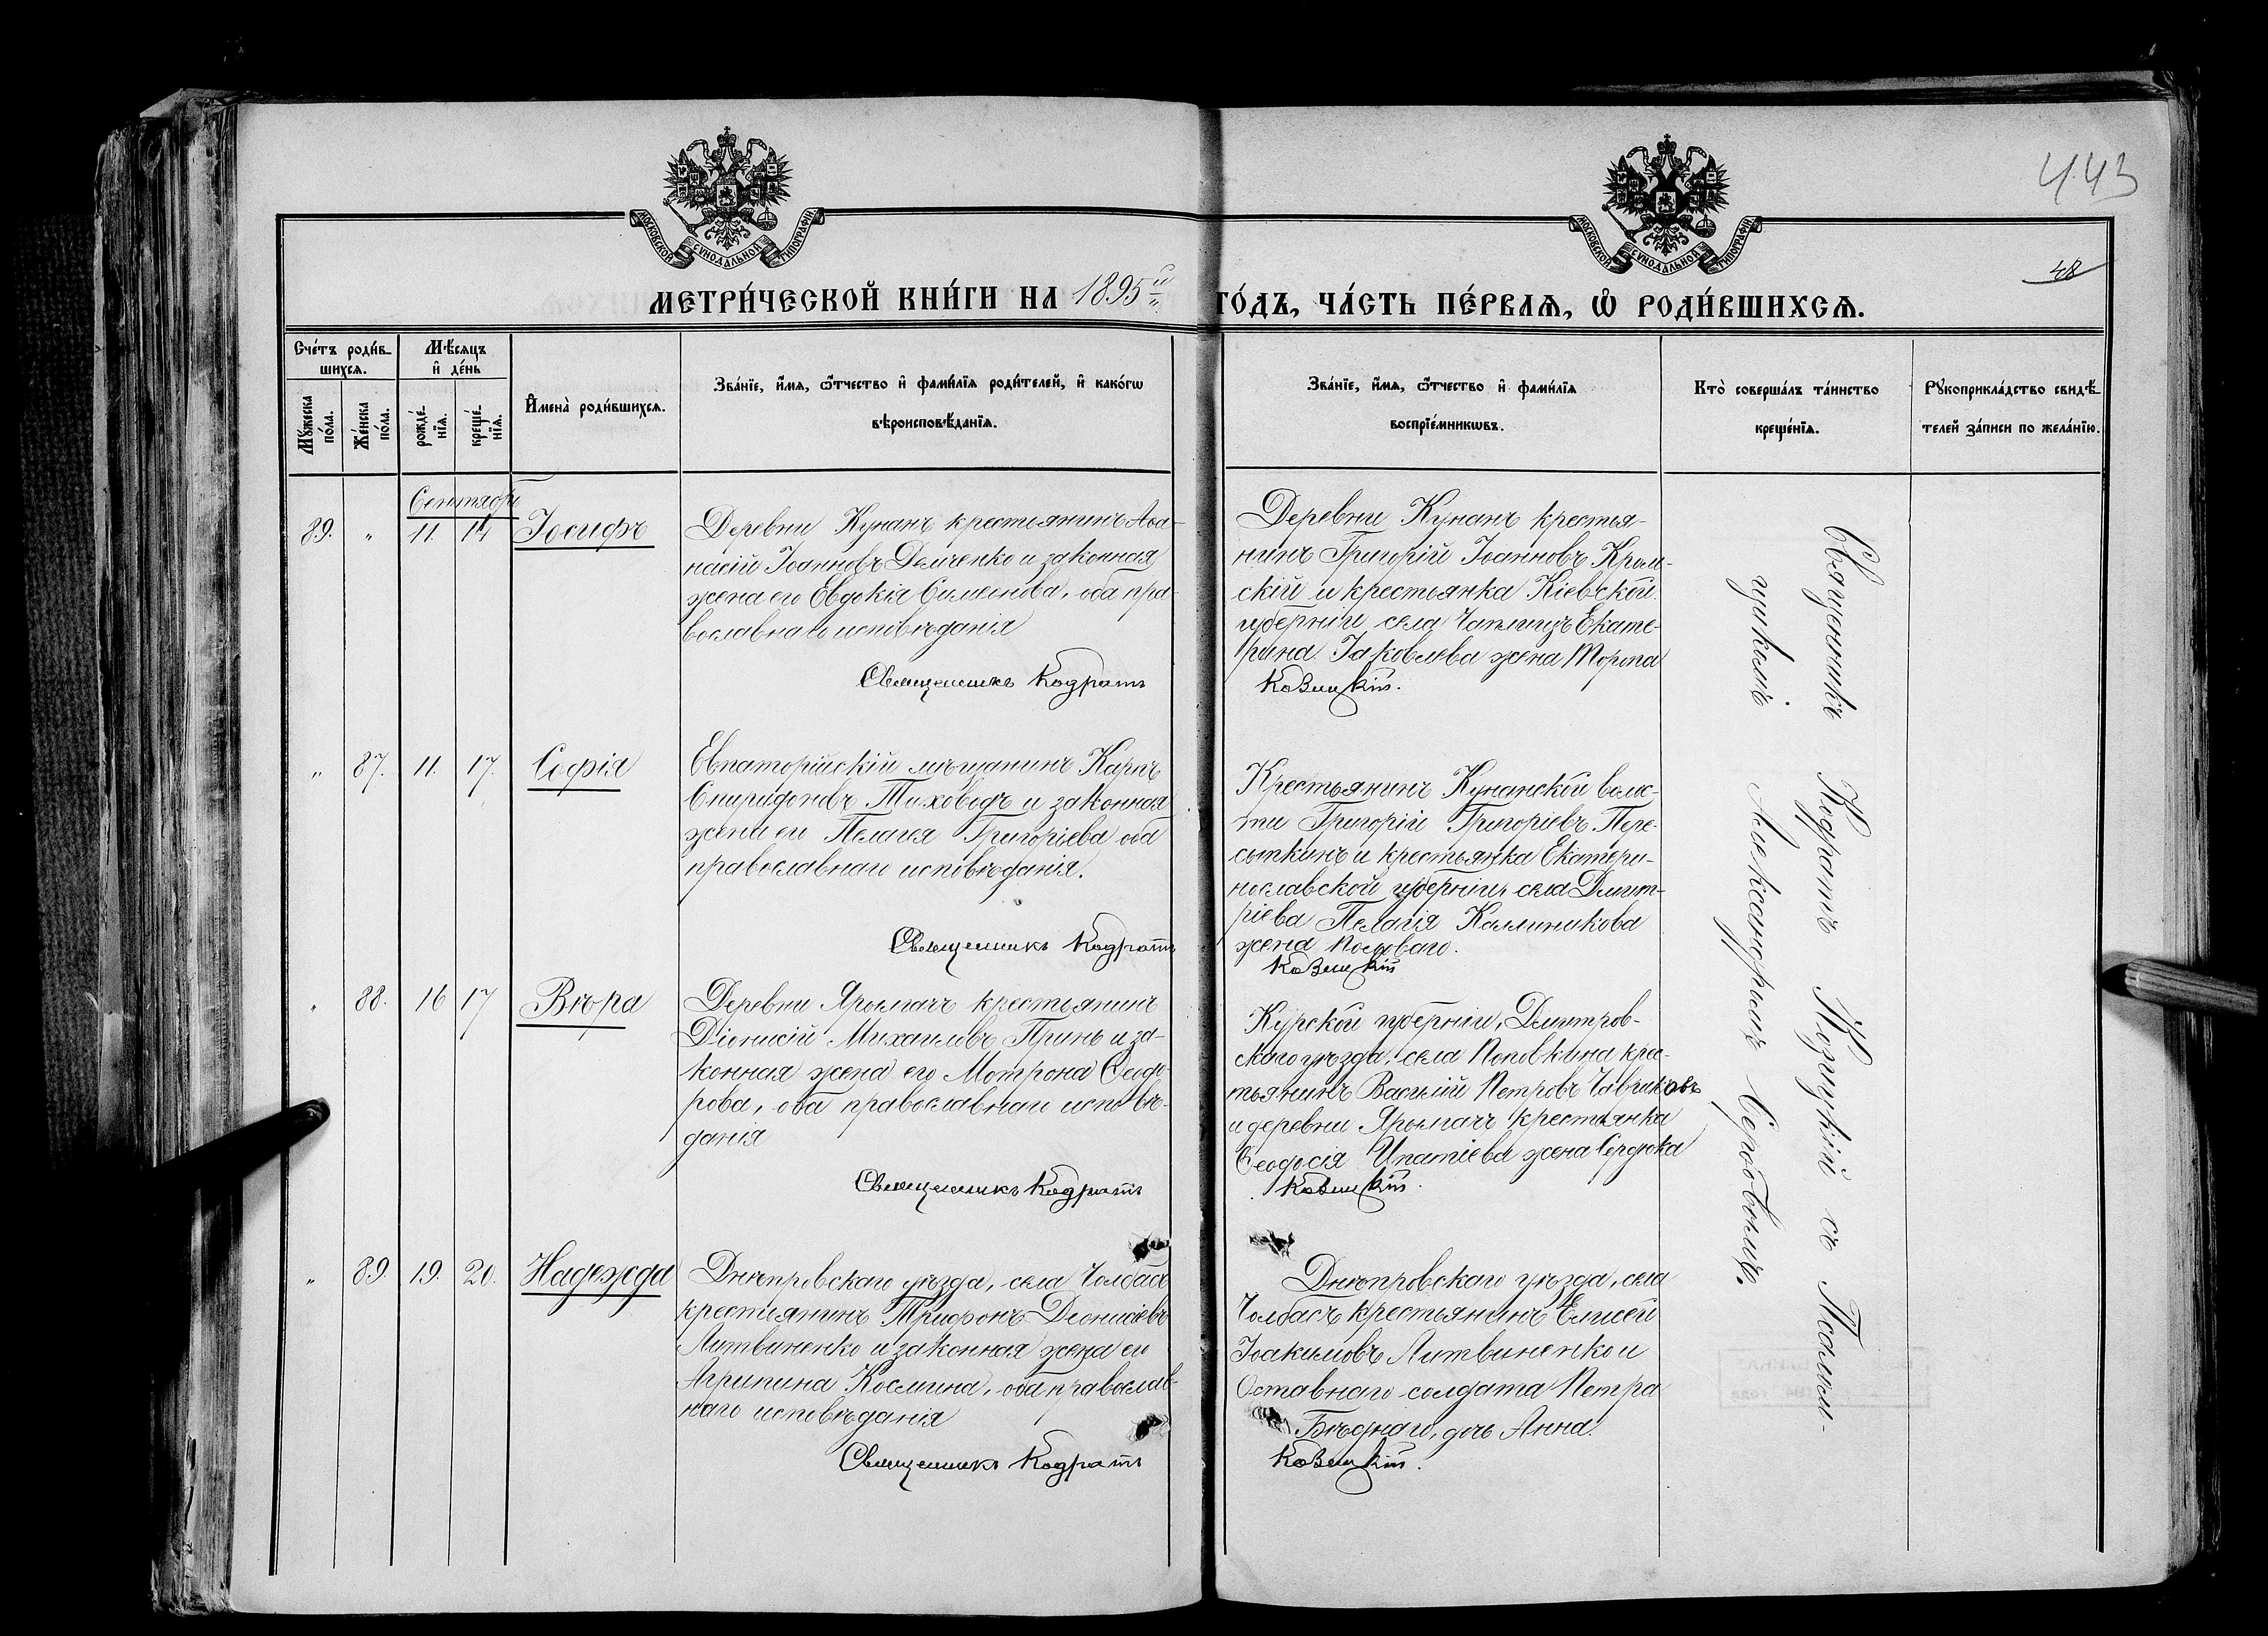 443
48
МОСКОВСКОЙ СѴНОДАЛЬНОЙ ТИПОГРАФІИ.
МОСКОВСКОЙ СѴНОДАЛЬНОЙ ТИПОГРАФІИ.
МЕТРИ́ЧЕСКОЙ КНИ́ГИ НА 1895й ГО́ДЪ, ЧА́СТЬ ПЕ́РВАѦ, Ѡ РОДИ́ВШИХСѦ.
Сче́тъ роди́в-
шихсѧ.
Мꙋжеска
по́ла.
Же́нска
по́ла.
Мѣ́сѧцъ
и де́нь
рожде́-
нїѧ.
креще́-
нїѧ.
Имена̀ роди́вшихсѧ.
Зва́нїе, и́мѧ, ѻ́тчество и фами́лїѧ роди́телей, и како́гѡ
вѣроисповѣ́данїѧ.
Зва́нїе, и́мѧ, ѻ́тчество и фами́лїѧ
воспрїе́мникѡвъ.
Кто̀ соверша́лъ та́инство
креще́нїѧ.
Рꙋкоприкла́дство свидѣ́-
телей за́писи по жела́нїю.
Сентябрь
89. " 11. 14 Іосифъ
Деревни Кунанъ крестьянинъ Аѳа-
насій Іоанновъ Демченко и законная
жена его Евдокія Симеонова, оба пра-
вославнаго исповѣданія
Священникъ Кодратъ
Деревни Кунанъ крестья-
нинъ Григорій Іоанновъ Кром-
скій и крестьянка Кіевской
губерніи села Чаплищъ Екате-
рина Іаковлева жена Торопа
Козицкій.
" 87. 11. 17. Софія
Евпаторійскій мѣщанинъ Карпъ
Спиридоновъ Тиховодъ и законная
жена его Пелагея Григоріева оба
православнаго исповѣданія.
Священникъ Кодратъ
Крестьянинъ Кунанской волос-
ти Григорій Григоріевъ Пере-
сыпкинъ и крестьянка Екатери-
нославской губерніи села Дмит-
ріева Пелагія Каллиникова
жена
Козицкій
" 88. 16 17 Вѣра
Деревни Ярылгачъ крестьянинъ
Діонисій Михаиловъ Принь и за-
конная жена его Мотрона Ѳеодо-
рова, оба православнаго исповѣ-
данія
Священникъ Кодратъ
Курской губерніи, Дмитров-
скаго уѣзда, села Поповкина крес-
тьянинъ Василій Петровъ Чавриковъ
и деревни Ярылгачъ крестьянка
Ѳеодосія Ипатіева жена Сердюка
Козицкій.
" 89. 19. 20. Надежда
Днѣпровскаго уѣзда, села Чолбасъ
крестьянинъ Трифонъ Діонисіевъ
Литвиненко и законная жена его
Агрипина Космина, оба православ-
наго исповѣданія
Священникъ Кодратъ
Днѣпровскаго уѣзда, села
Чолбасъ крестьянинъ Елисей
Іоакимовъ Литвиненко и
Оставнаго солдата Петра
Бѣднаго, дочь Анна.
Козицкій.
Священникъ Кодратъ Козицкій съ Псалом-
щикомъ Александромъ Серобовымъ.